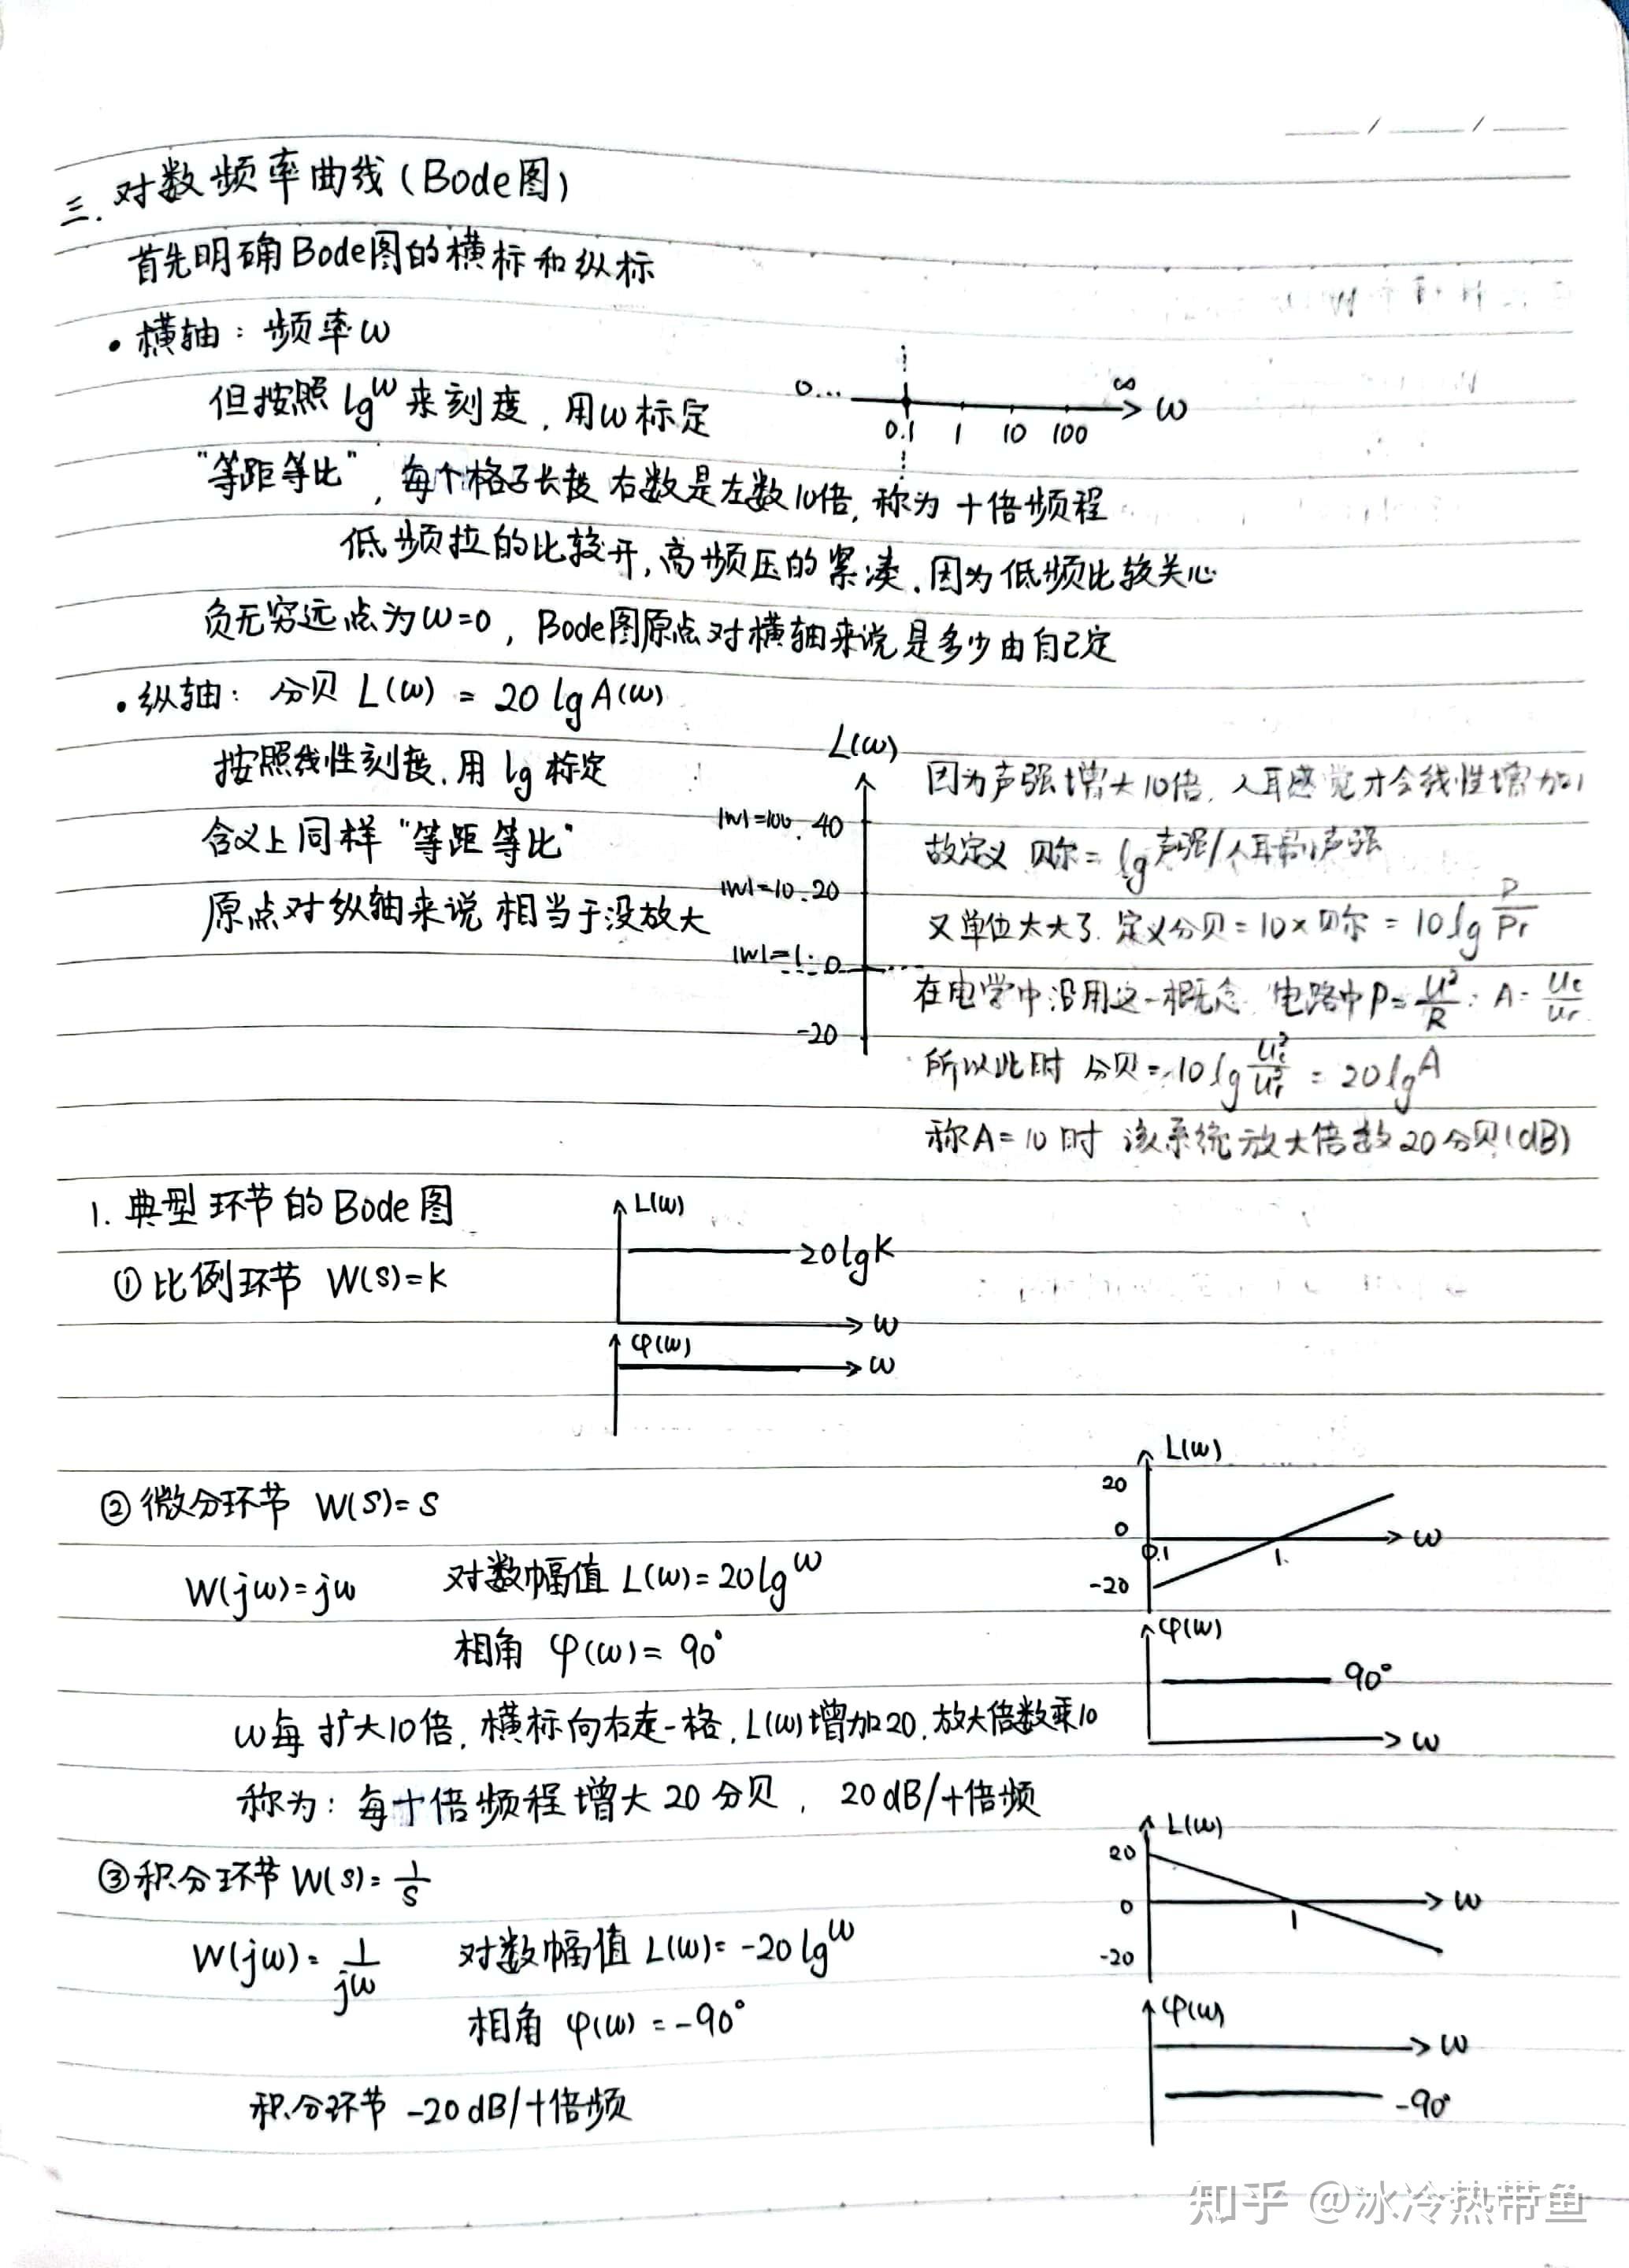 三.对数频率曲线(Bode图)
首先明确Bode图的横标和纵标
• 横轴: 频率ω
但按照 lg^ω 来刻度, 用ω标定
0... ∞ ω
0.1 1 10 100
"等距等比", 每个格子长度 右数是左数10倍, 称为 十倍频程
低频拉的比较开, 高频压的紧凑. 因为低频比较关心
负无穷远点为ω=0, Bode图原点对横轴来说是多少由自己定
• 纵轴: 分贝 L(ω) = 20 lg A(ω)
按照线性刻度, 用 lg 标定
含义上同样 "等距等比"
原点对纵轴来说 相当于没放大
L(ω)
|W|=100. 40
|W|=10. 20
|W|=1. 0
-20
因为声强增大10倍, 人耳感觉才会线性增加1
故定义 贝尔= lg 声强/人耳最小声强
又单位太大了. 定义分贝=10×贝尔 = 10 lg P/Pr
在电学中沿用这一概念 电路中P=U²/R, A=Uc/Ur
所以此时 分贝=10 lg Uc²/Ur² = 20 lg A
称A=10时 该系统放大倍数20分贝(dB)
1. 典型环节的Bode图
① 比例环节 W(s)=K
L(ω)
20lgK
ω
φ(ω)
ω
② 微分环节 W(s)=s
W(jω)=jω 对数幅值 L(ω)=20lg^ω
相角 φ(ω)= 90°
L(ω)
20
0 ω
0.1 1
-20
φ(ω)
90°
ω
ω每 扩大10倍, 横标向右走一格, L(ω)增加20, 放大倍数乘10
称为: 每十倍频程增大 20 分贝, 20 dB/十倍频
③ 积分环节 W(s)= 1/s
W(jω)= 1/jω 对数幅值 L(ω)= -20 lg^ω
相角 φ(ω) = -90°
积分环节 -20 dB/十倍频
L(ω)
20
0 ω
1
-20
φ(ω)
ω
-90°
知乎 @冰冷热带鱼